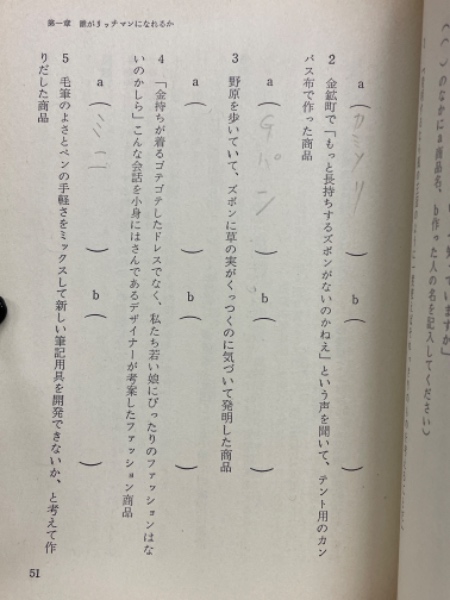 第一章 誰がリッチマンになれるか
いくつ知っていますか」
( )のなかにa商品名、b作った人の名を記入してください)
a( カミソリ ) b( )
2 金鉱町で「もっと長持ちするズボンがないのかねえ」という声を聞いて、テント用のカン
バス布で作った商品
a( Gパン ) b( )
3 野原を歩いていて、ズボンに草の実がくっつくのに気づいて発明した商品
a( ) b( )
4 「金持ちが着るゴテゴテしたドレスでなく、私たち若い娘にぴったりのファッションはな
いのかしら」こんな会話を小耳にはさんであるデザイナーが考案したファッション商品
a( ミニ ) b( )
5 毛筆のよさとペンの手軽さをミックスして新しい筆記用具を開発できないか、と考えて作
りだした商品
51